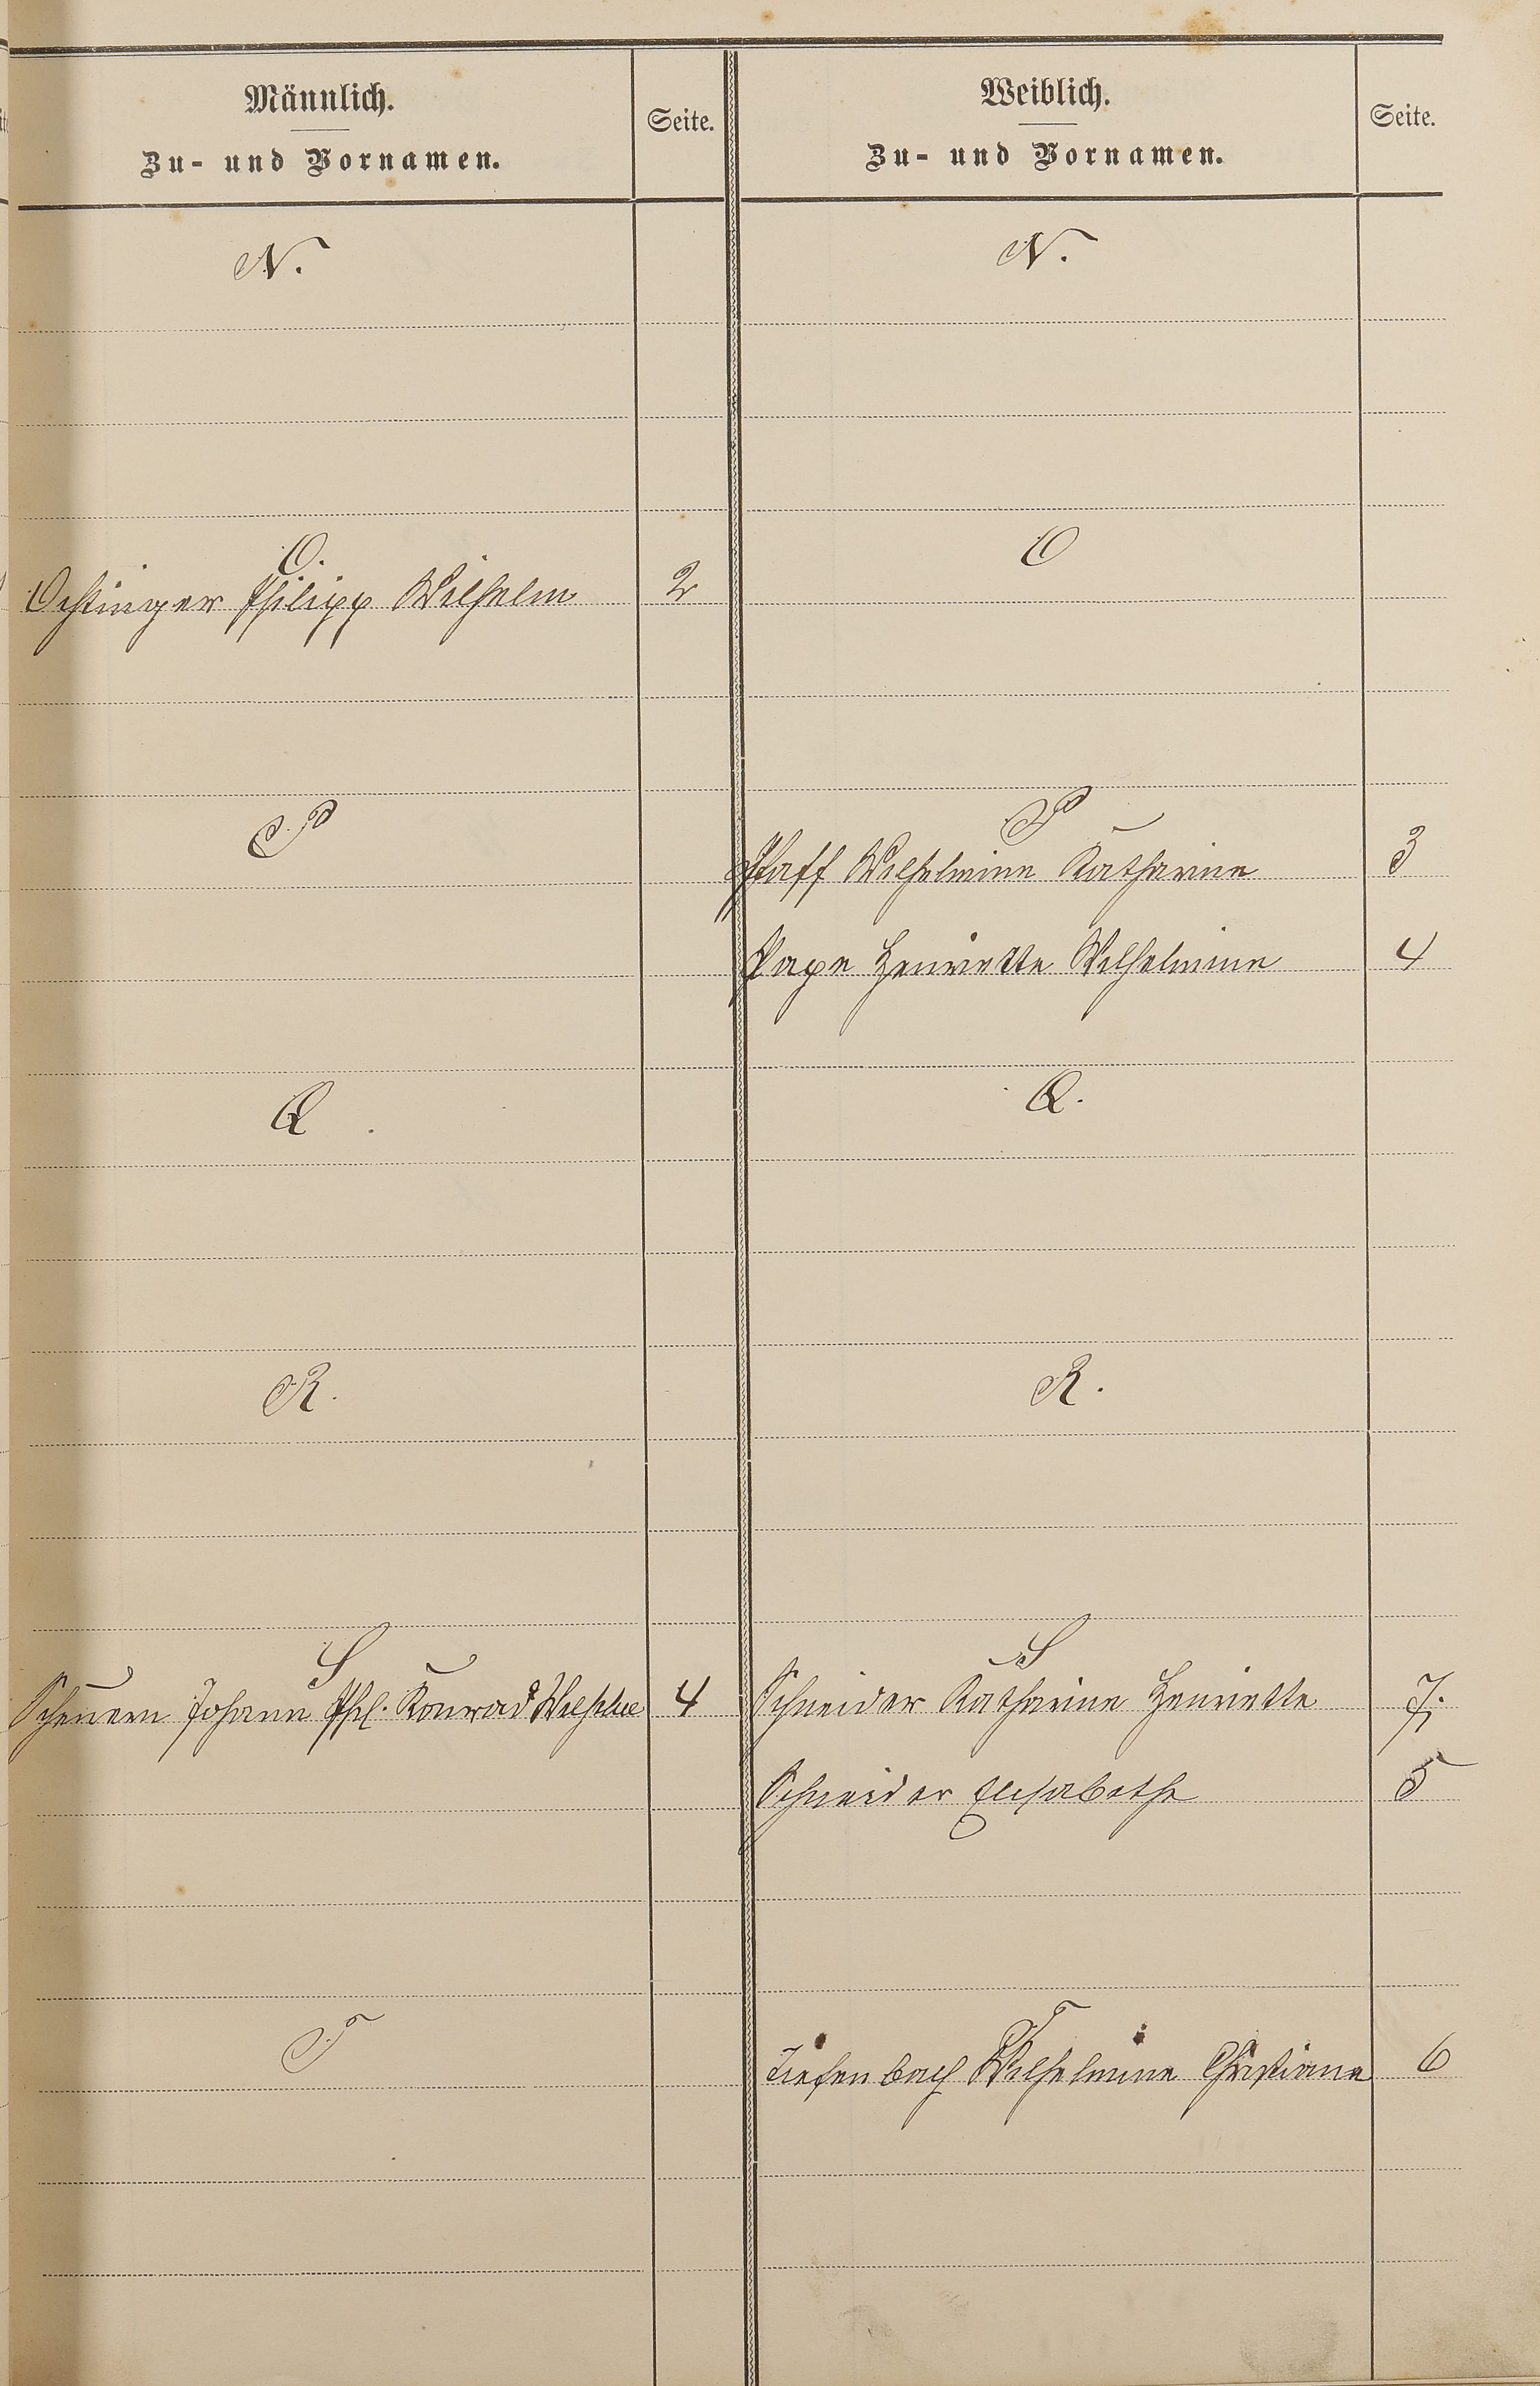 Männlich.
Zu- und Vornamen.
Seite.
Weiblich.
Zu- und Vornamen.
Seite.
N.
N.
O.
O
Oestinger Philipp Wilhelm 2
P
P
Pfaff Wilhelmine Katharine 3
Pape Henriette Wilhelmine 4
Q.
Q.
R.
R.
S
S
Scheuern Johann Phil. Konrad 4
Schneider Katharine Henriette 7.
Schneider Elisabethe 5
T
T
Tiefenbach Wilhelmine Christiane 6